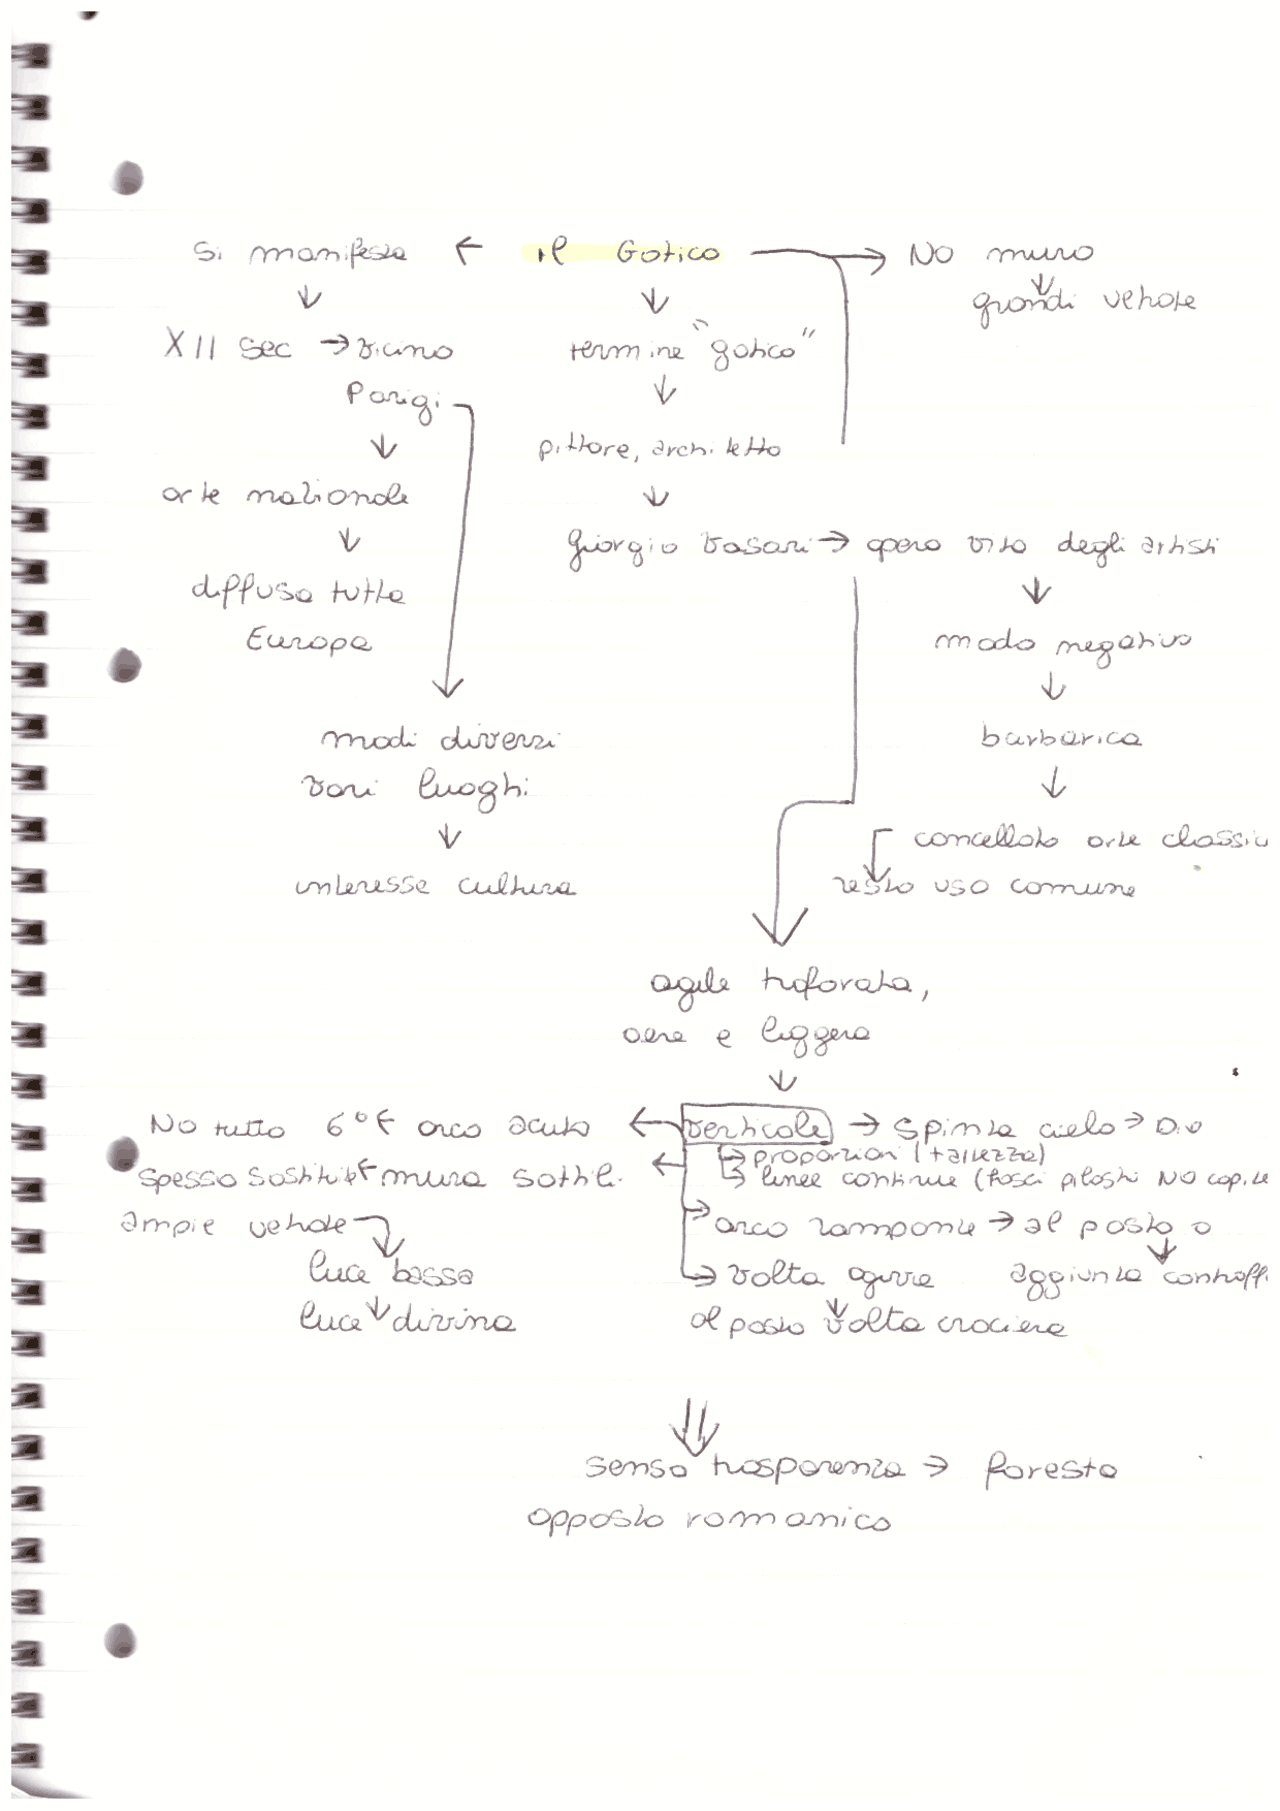 si manifesta ← il Gotico → No muro
↓ ↓ ↓
grandi vetrate
XII sec → vicino termine "gotico"
Parigi ↓
↓ pittore, architetto
arte nazionale ↓
↓ giorgio vasari → opera vita degli artisti
diffusa tutta ↓
Europa modo negativo
↓
modi diversi barbarica
vari luoghi ↓
↓ cancellato arte classi
interesse cultura resto uso comune
agile traforata,
aerea e leggera
↓
No tutto 6° ← arco acuto ← verticale → spinta cielo → Dio
→ proporzioni (+altezza)
spesso sostituite ← mura sottili ← → linee continue (fasci pilastri NO capite
ampie vetrate → arco rampante → al posto o
luce bassa → volta ogiva aggiunta contraff
luce ↓ divina al posto volta crociera
⇓
senso trasparenza → foresta
opposto romanico